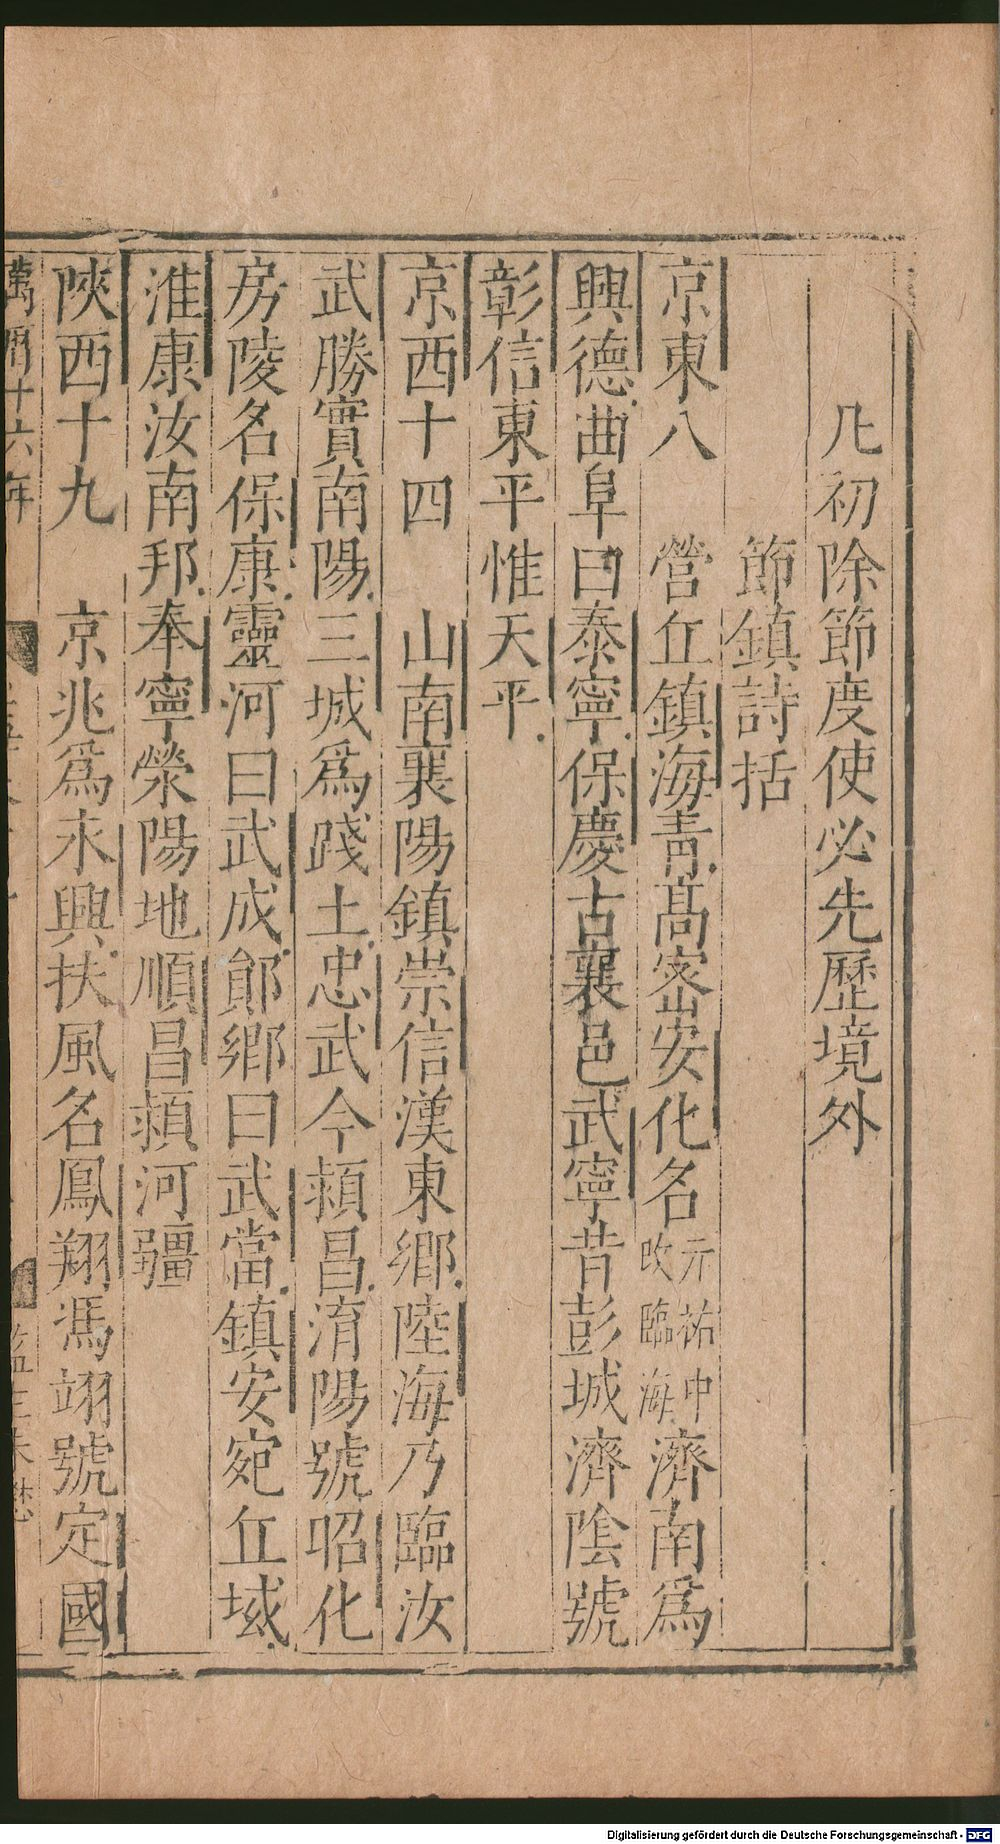 凡初除節度使必先歷境外
節鎮詩括
京東八　營丘鎮海青髙宻安化名元祐中改臨海濟南爲
興德曲阜曰泰寧保慶古襄邑武寧昔彭城濟隂號
彰信東平惟天平
京西十四　山南襄陽鎮崇信漢東鄉陸海乃臨汝
武勝實南陽三城爲踐土忠武今頴昌淯陽號昭化
房陵名保康靈河曰武成鄖鄉曰武當鎮安宛丘域
淮康汝南邦奉寧滎陽地順昌頴河疆
陜西十九　京兆爲永興扶風名鳳翔馮翊號定國
萬曆十六年
Digitalisierung gefördert durch die Deutsche Forschungsgemeinschaft - DFG